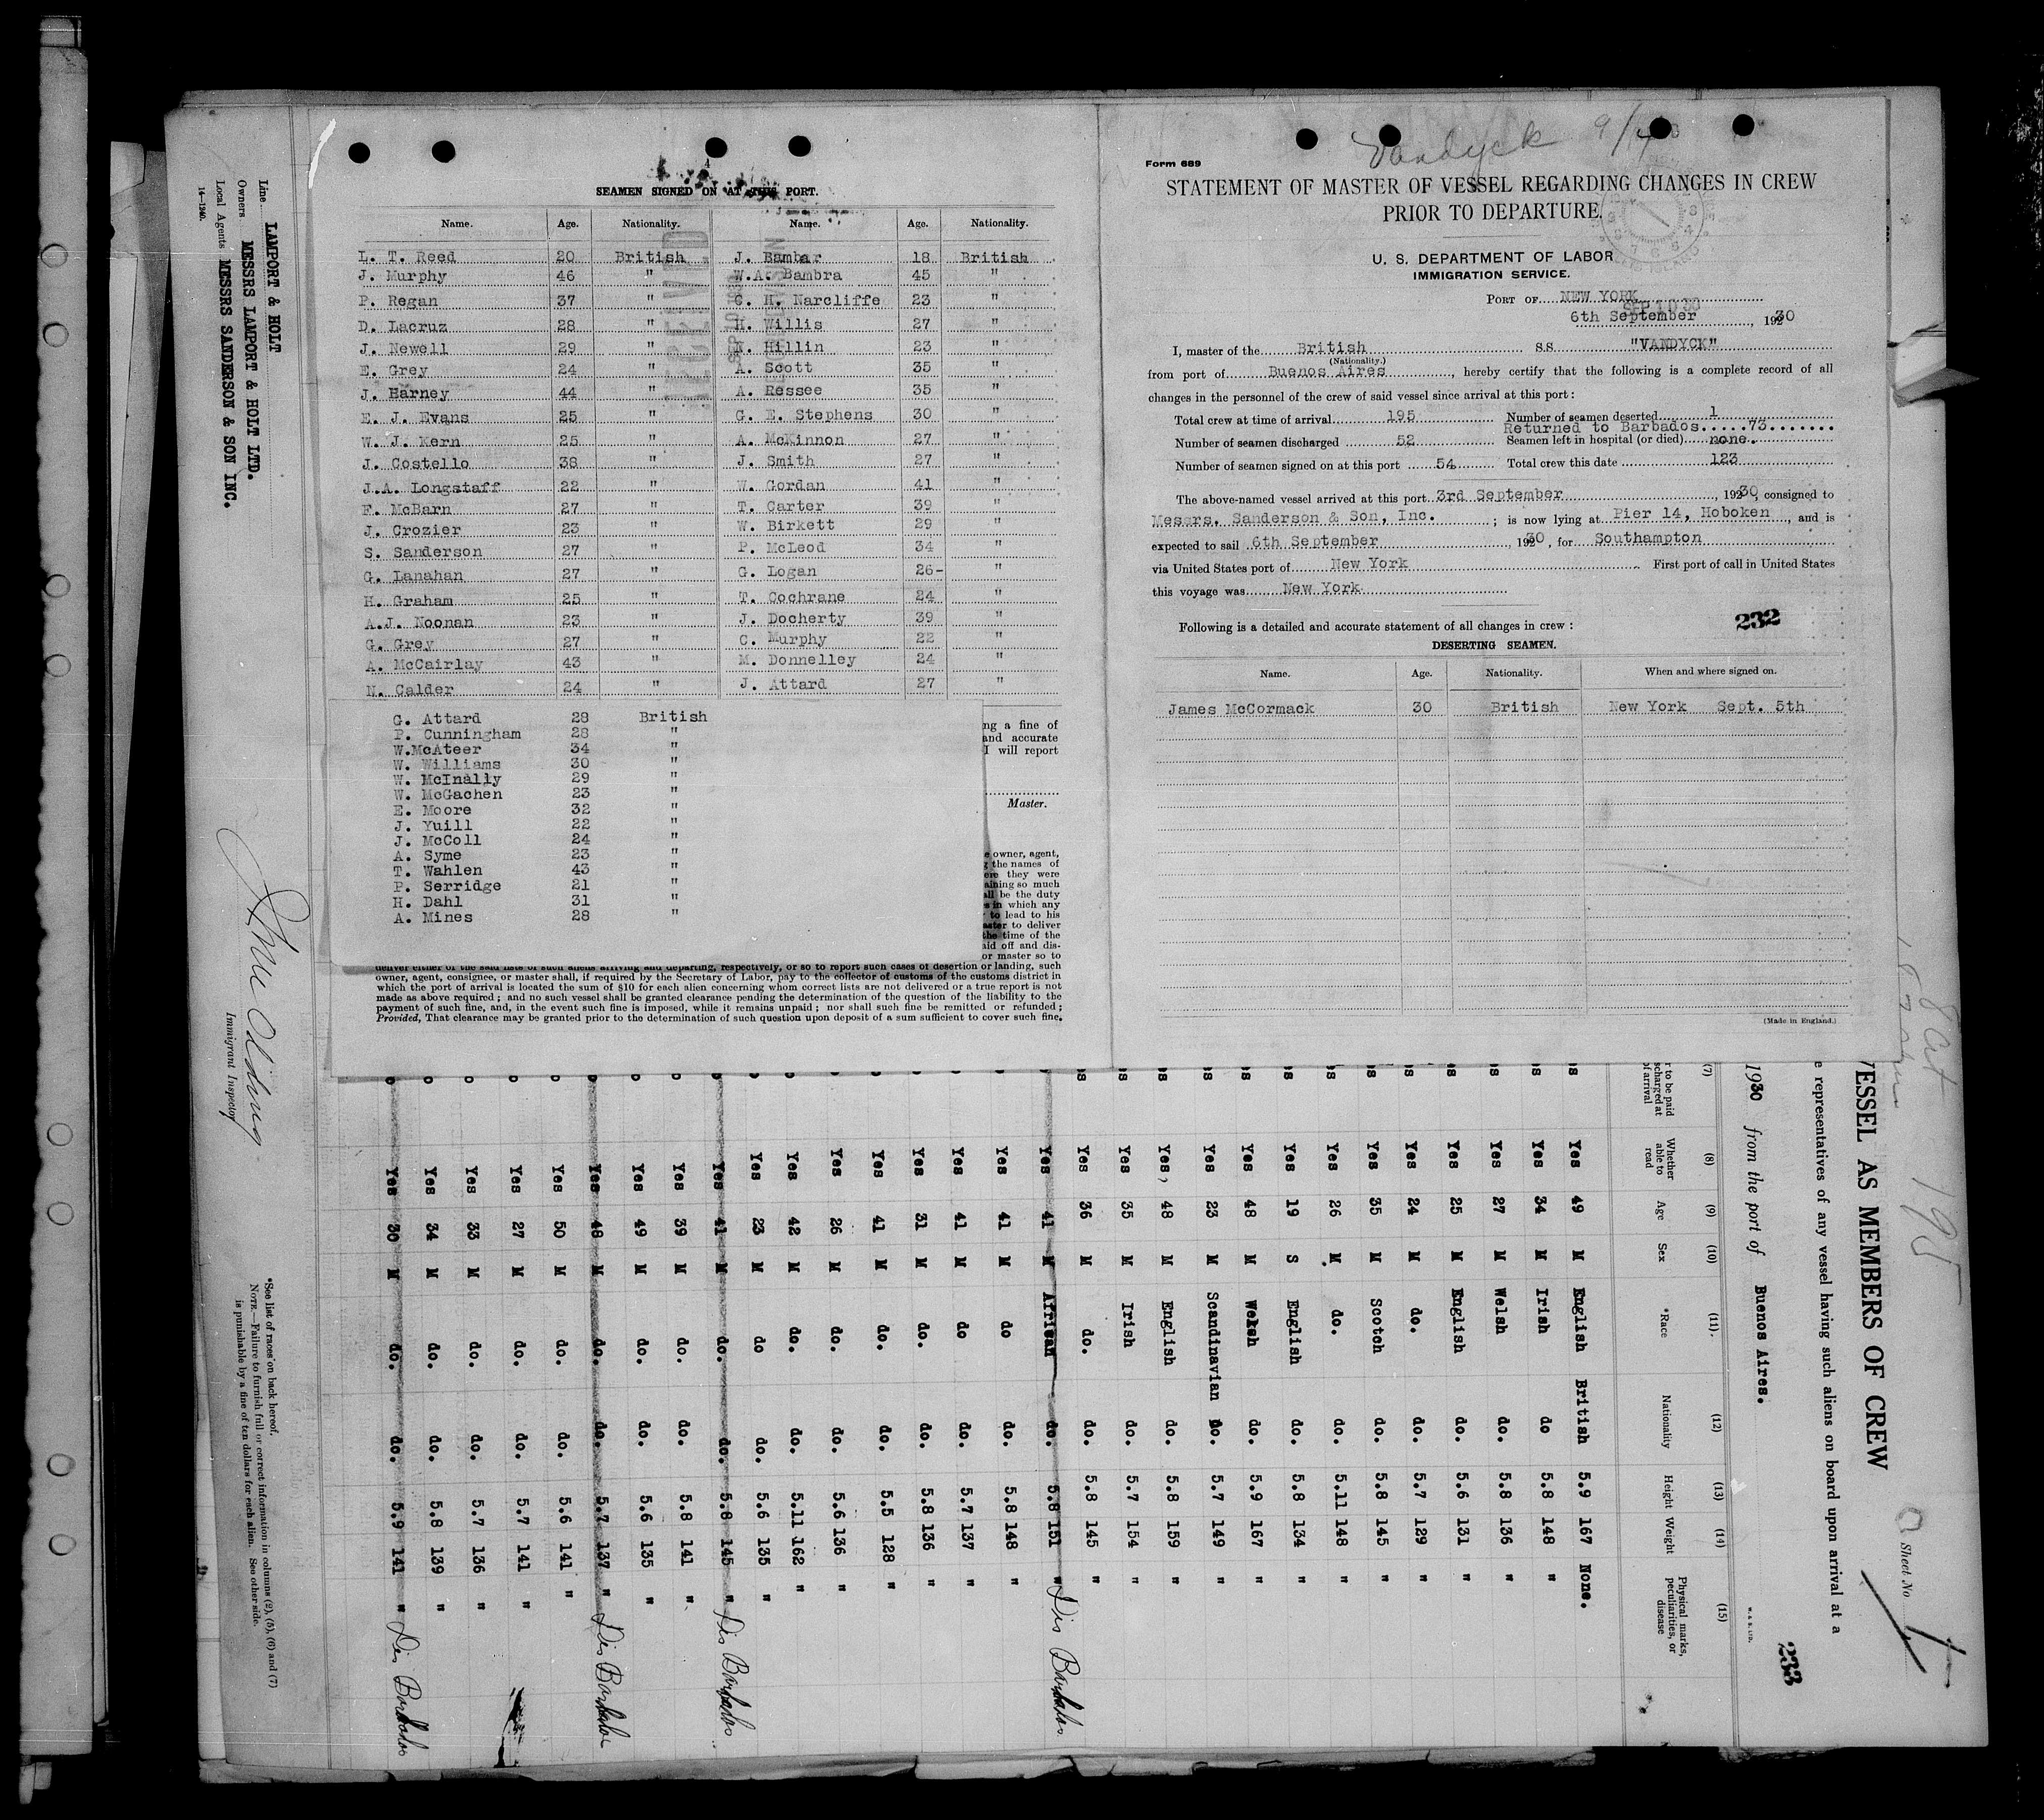 4
SEAMEN SIGNED ON AT THIS PORT.
Name. Age. Nationality. Name. Age. Nationality.
L. T. Reed 20 British J. Bambar 18 British
J. Murphy 46 " W.A. Bambra 45 "
P. Regan 37 " C. H. Narcliffe 23 "
D. Lacruz 28 " H. Willis 27 "
J. Newell 29 " N. Hillin 23 "
E. Grey 24 " A. Scott 35 "
J. Harney 44 " A. Ressee 35 "
E. J. Evans 25 " G. E. Stephens 30 "
W. J. Kern 25 " A. McKinnon 27 "
J. Costello 38 " J. Smith 27 "
J.A. Longstaff 22 " W. Gordan 41 "
F. McBarn 27 " T. Carter 39 "
J. Crozier 23 " W. Birkett 29 "
S. Sanderson 27 " P. McLeod 34 "
G. Lanahan 27 " G. Logan 26- "
H. Graham 25 " T. Cochrane 24 "
A.J. Noonan 23 " J. Docherty 39 "
G. Grey 27 " C. Murphy 22 "
A. McCairlay 43 " M. Donnelley 24 "
N. Calder 24 " J. Attard 27 "
G. Attard 28 British
P. Cunningham 28 "
W.McAteer 34 "
W. Williams 30 "
W. McInally 29 "
W. McGachen 23 "
E. Moore 32 "
J. Yuill 22 "
J. McColl 24 "
A. Syme 23 "
T. Wahlen 43 "
P. Serridge 21 "
H. Dahl 31 "
A. Mines 28 "
ng a fine of
and accurate
I will report
Master.
e owner, agent,
g the names of
ere they were
aining so much
all be the duty
s in which any
to lead to his
aster to deliver
the time of the
aid off and dis-
or master so to
deliver either of the said lists of such aliens arriving and departing, respectively, or so to report such cases of desertion or landing, such
owner, agent, consignee, or master shall, if required by the Secretary of Labor, pay to the collector of customs of the customs district in
which the port of arrival is located the sum of $10 for each alien concerning whom correct lists are not delivered or a true report is not
made as above required; and no such vessel shall be granted clearance pending the determination of the question of the liability to the
payment of such fine, and, in the event such fine is imposed, while it remains unpaid; nor shall such fine be remitted or refunded;
Provided, That clearance may be granted prior to the determination of such question upon deposit of a sum sufficient to cover such fine.
Vandyck
Form 689
STATEMENT OF MASTER OF VESSEL REGARDING CHANGES IN CREW
PRIOR TO DEPARTURE.
U. S. DEPARTMENT OF LABOR
IMMIGRATION SERVICE.
PORT OF NEW YORK
SEP 10 30
6th September, 1930
I, master of the British SS "VANDYCK"
(Nationality.)
from port of Buenos Aires, hereby certify that the following is a complete record of all
changes in the personnel of the crew of said vessel since arrival at this port:
Total crew at time of arrival 195 Number of seamen deserted 1
Returned to Barbados.....73.......
Number of seamen discharged 52 Seamen left in hospital (or died) none.
Number of seamen signed on at this port 54 Total crew this date 123
The above-named vessel arrived at this port 3rd September, 1930, consigned to
Messrs. Sanderson & Son, Inc.; is now lying at Pier 14, Hoboken, and is
expected to sail 6th September, 1930, for Southampton
via United States port of New York. First port of call in United States
this voyage was New York
232
Following is a detailed and accurate statement of all changes in crew:
DESERTING SEAMEN.
Name. Age. Nationality. When and where signed on.
James McCormack 30 British New York Sept. 5th
(Made in England.)
195
Sheet No. 1
VESSEL AS MEMBERS OF CREW
e representatives of any vessel having such aliens on board upon arrival at a
233
1930 from the port of Buenos Aires.
W. & S. LTD.
(7) (8) (9) (10) (11). (12) (13) (14) (15)
r to be paid
scharged at
of arrival
Whether able to read Age Sex *Race Nationality Height Weight Physical marks, peculiarities, or disease
es Yes 49 M English British 5.9 167 None.
es Yes 34 M Irish do 5.8 148 "
es Yes 27 M Welsh do. 5.8 136 "
es Yes 25 M English do. 5.6 131 "
es Yes 24 M do. do. 5.7 129 "
es Yes 35 M Scotch do. 5.8 145 "
es Yes 26 M do. do. 5.11 148 "
es Yes 19 S English do. 5.8 134 "
es Yes 48 M Welsh do. 5.9 167 "
es Yes 23 M Scandinavian Do. 5.7 149 "
es Yes, 48 M English do. 5.8 159 "
es Yes 35 M Irish do. 5.7 154 "
es Yes 36 M do. do. 5.8 145 "
Yes 41 M African do. 5.8 151 " Dis Barbados
Yes 41 M do do. 5.8 148 "
Yes 41 M do do. 5.7 137 "
Yes 31 M do. do. 5.8 136 "
Yes 41 M do. do. 5.5 128 "
Yes 26 M do. do. 5.6 136 "
Yes 42 M do. do. 5.11 162 "
Yes 23 M do do. 5.6 135 "
Yes 41 M do. do. 5.8 145 " Dis Barbados
Yes 39 M do. do. 5.8 141 "
Yes 49 M do. do. 5.6 135 "
Yes 48 M do. do. 5.7 137 " Dis Barbados
Yes 50 M do. do. 5.6 141 "
Yes 27 M do. do. 5.7 141 "
Yes 33 M do. do. 5.7 136 "
Yes 34 M do. do. 5.8 139 "
Yes 30 M do. do. 5.9 141 " Dis Barbados
Line LAMPORT & HOLT
Owners MESSRS LAMPORT & HOLT LTD.
Local Agents MESSRS SANDERSON & SON INC.
14—1240.
Immigrant Inspector
*See list of races on back hereof.
NOTE.—Failure to furnish full or correct information in columns (2), (5), (6) and (7)
is punishable by a fine of ten dollars for each alien. See other side.